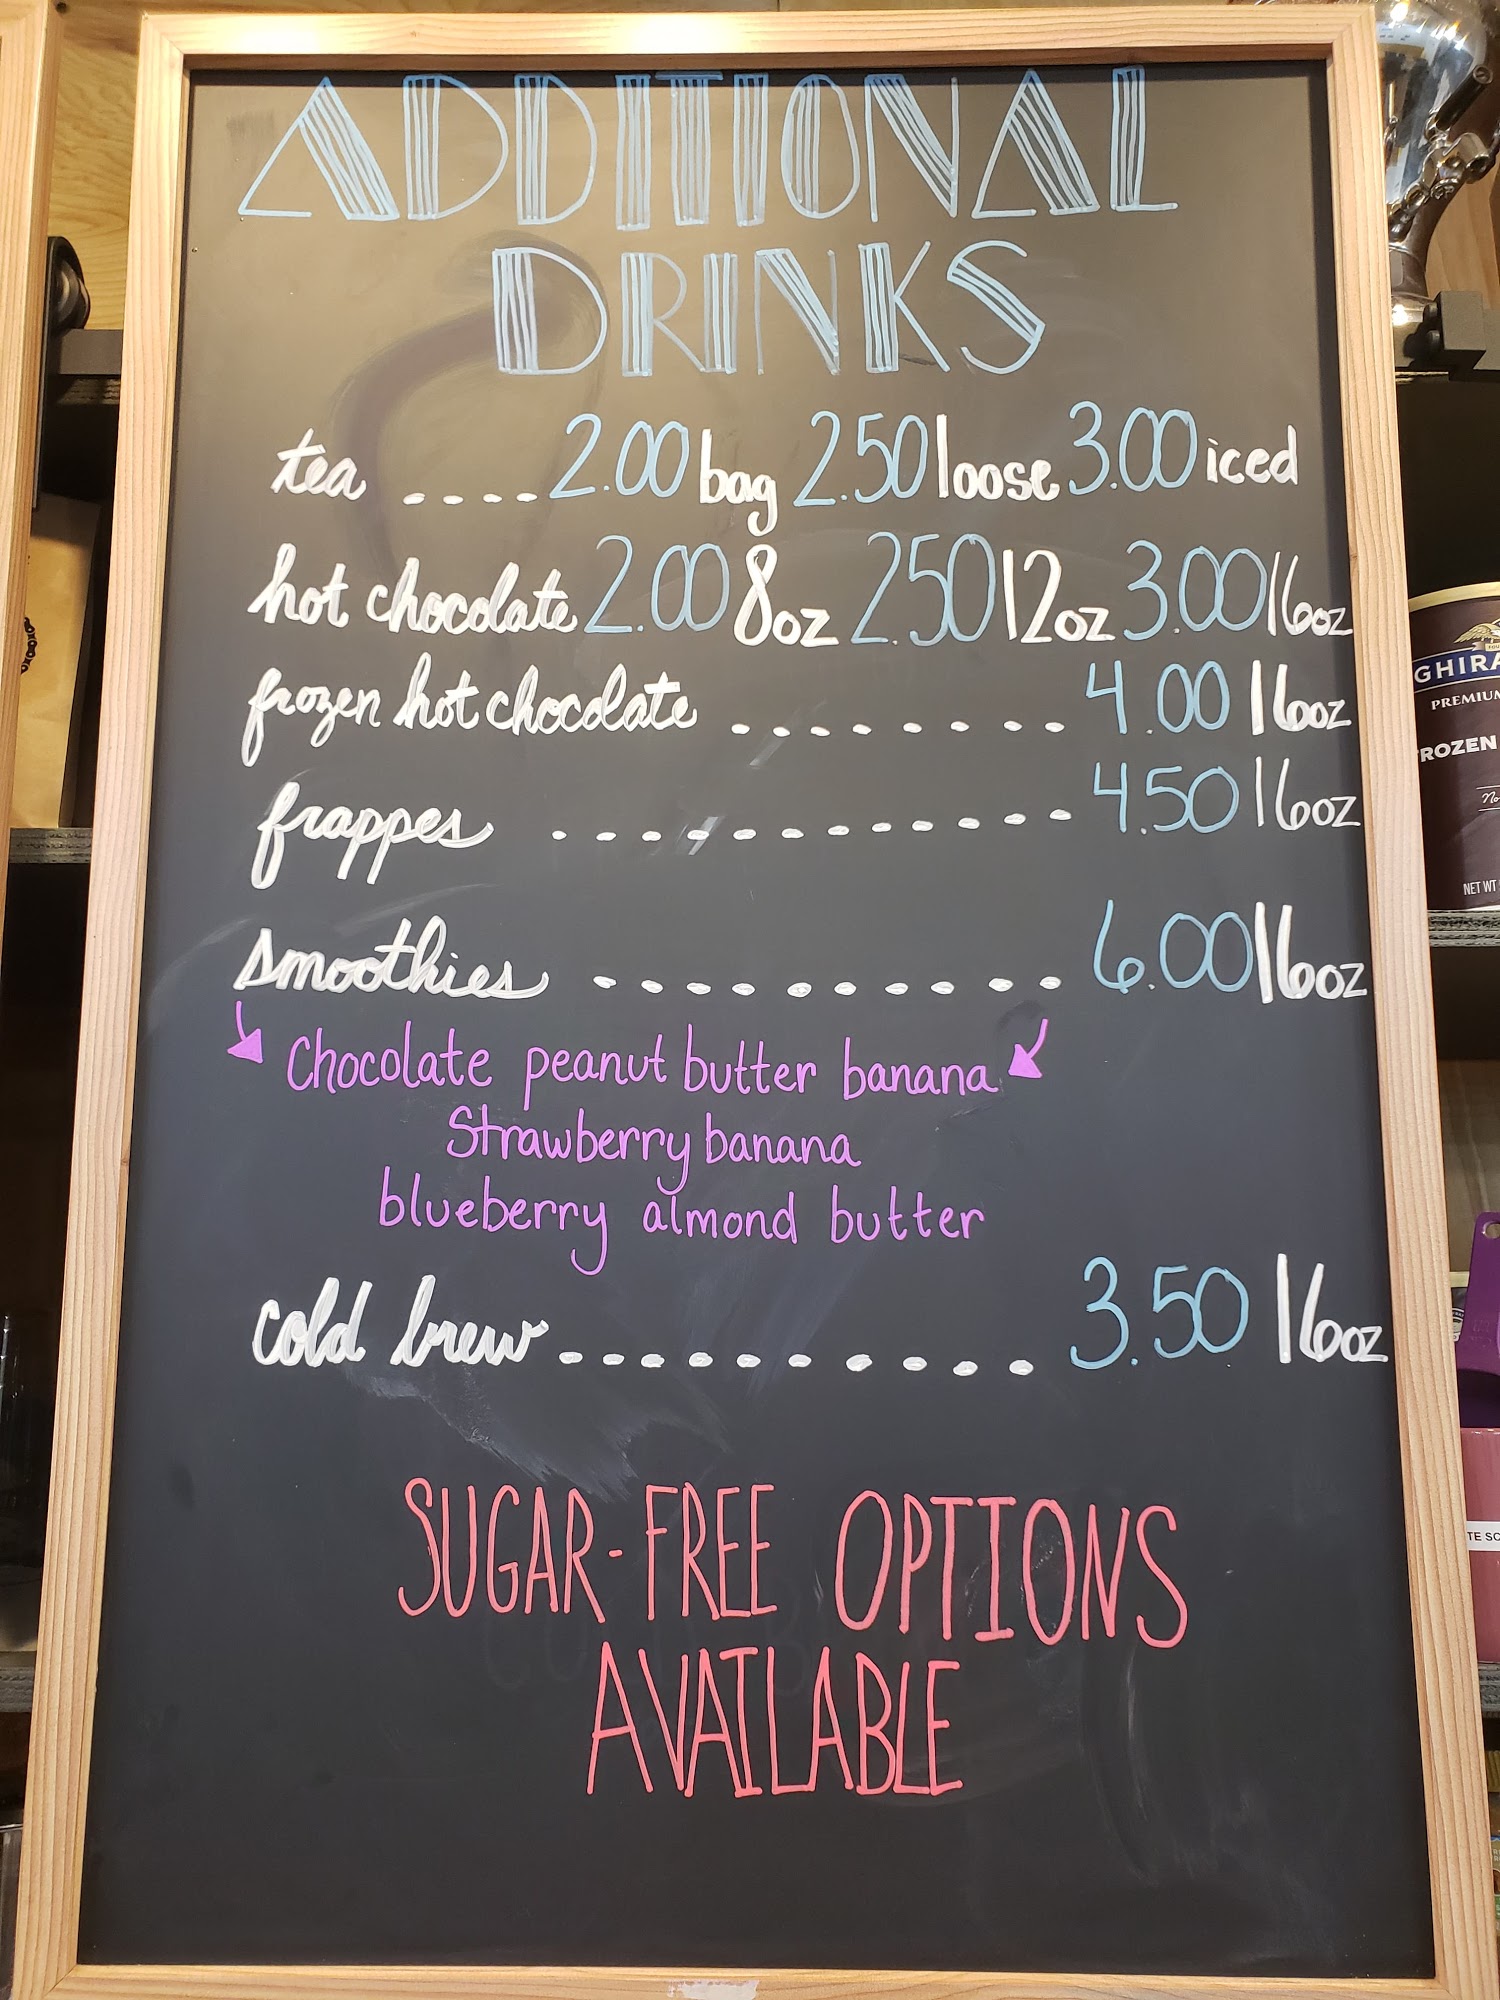 ADDITIONAL
DRINKS
tea ....2.00 bag 2.50 loose 3.00 iced
hot chocolate 2.00 8oz 2.50 12oz 3.00 16oz
frozen hot chocolate ........ 4.00 16oz
frappes ............ 4.50 16oz
smoothies .......... 6.00 16oz
Chocolate peanut butter banana
Strawberry banana
blueberry almond butter
cold brew .......... 3.50 16oz
SUGAR-FREE OPTIONS
AVAILABLE
GHIRA
PREMIUM
ROZEN
NET WT
TE SC